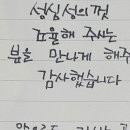 성심성의껏
조율해 주시는
분을 만나게 해주
감사했습니다